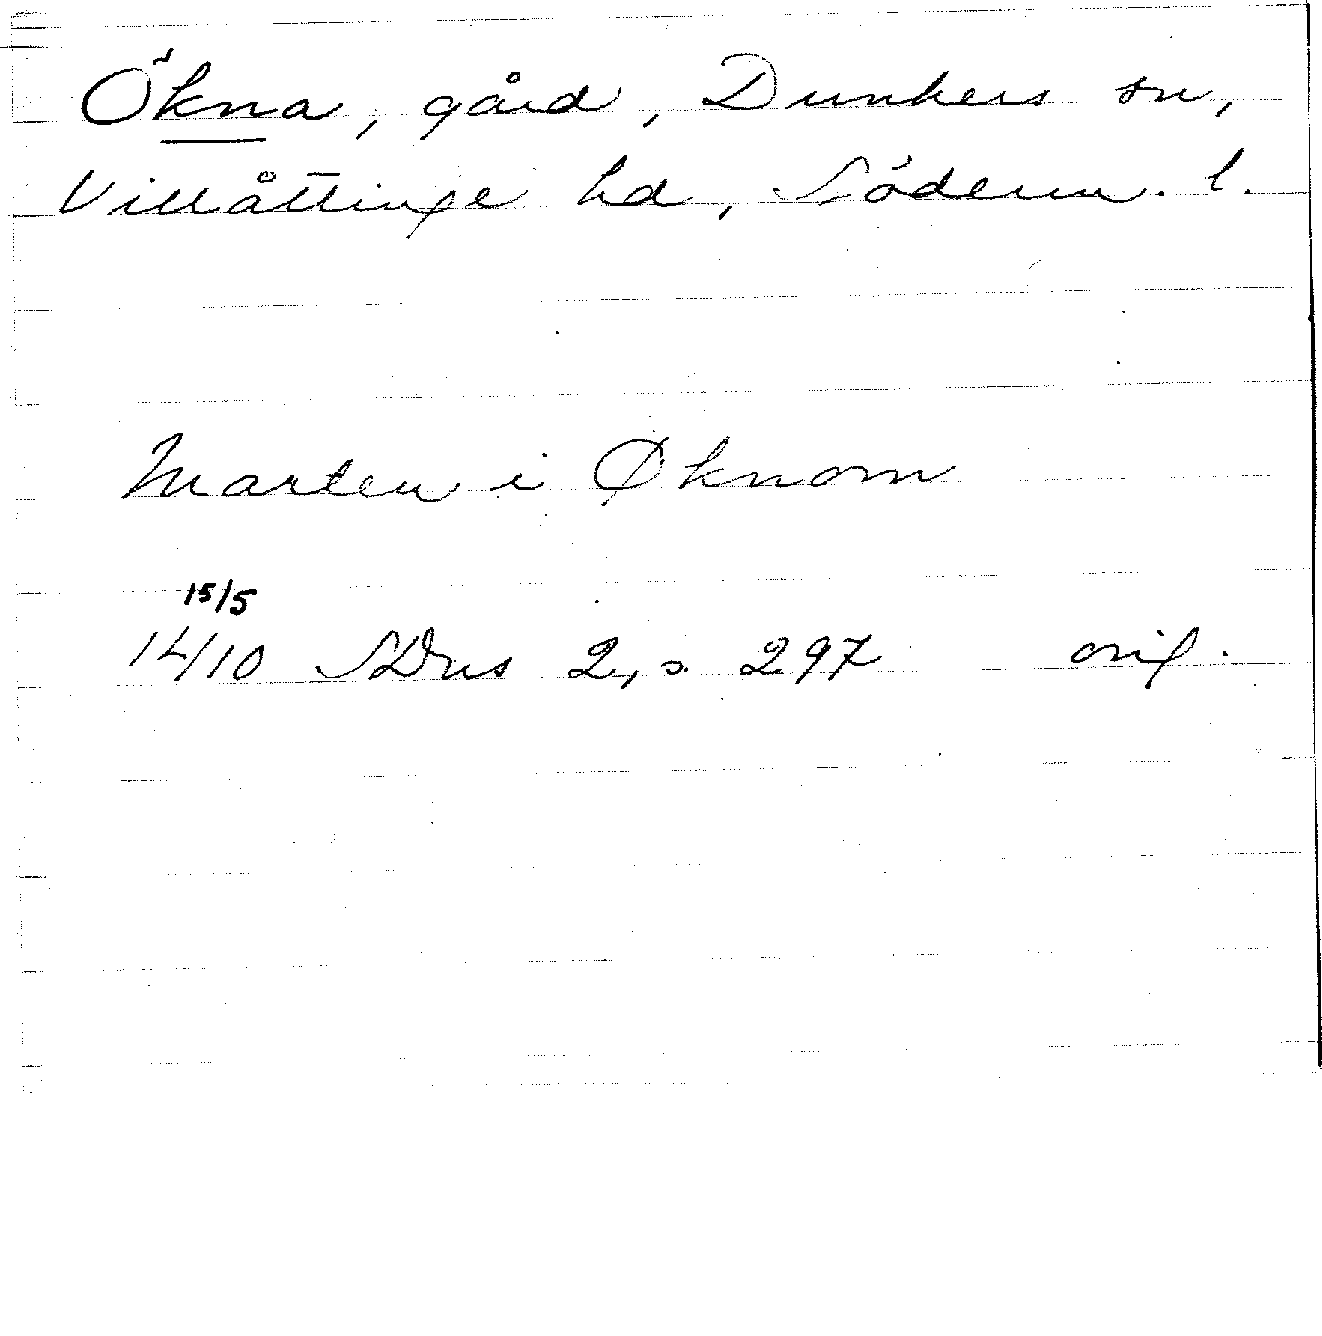 Ökna, gård, Dunkers sn,
Villåttinge hd, Söderm. l.
Marten i Øknom
15/5
14/10 SDns 2, s. 297 orig.